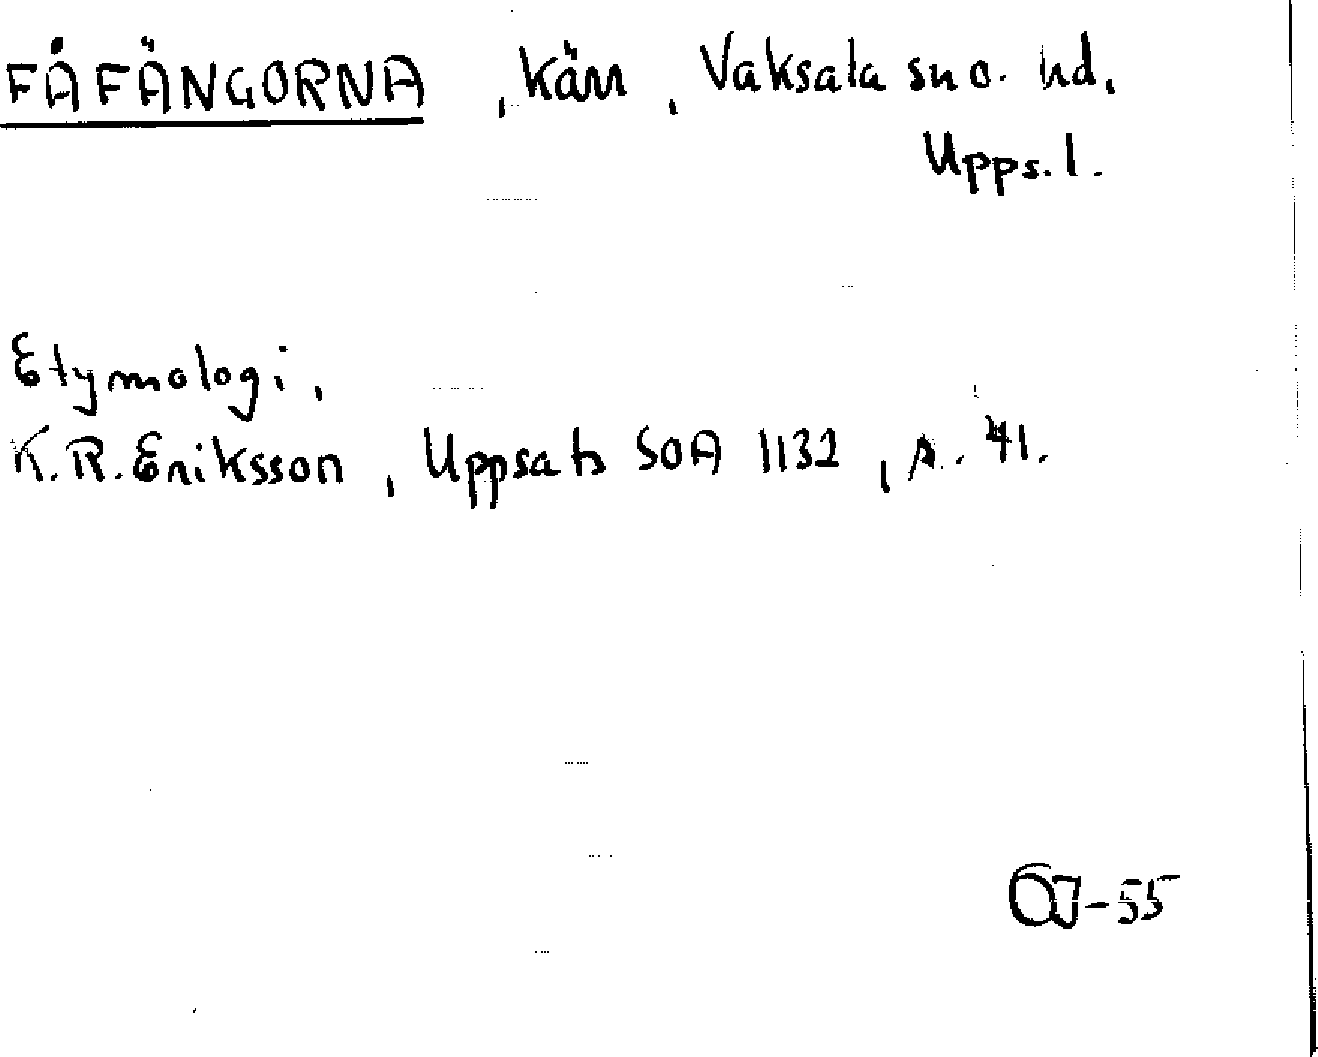 FÅFÄNGORNA, Kärr, Vaksala sn o. hd.
Upps. l.
Etymologi,
K.R. Eriksson, Uppsats SOA 1132, s. 41.
-55